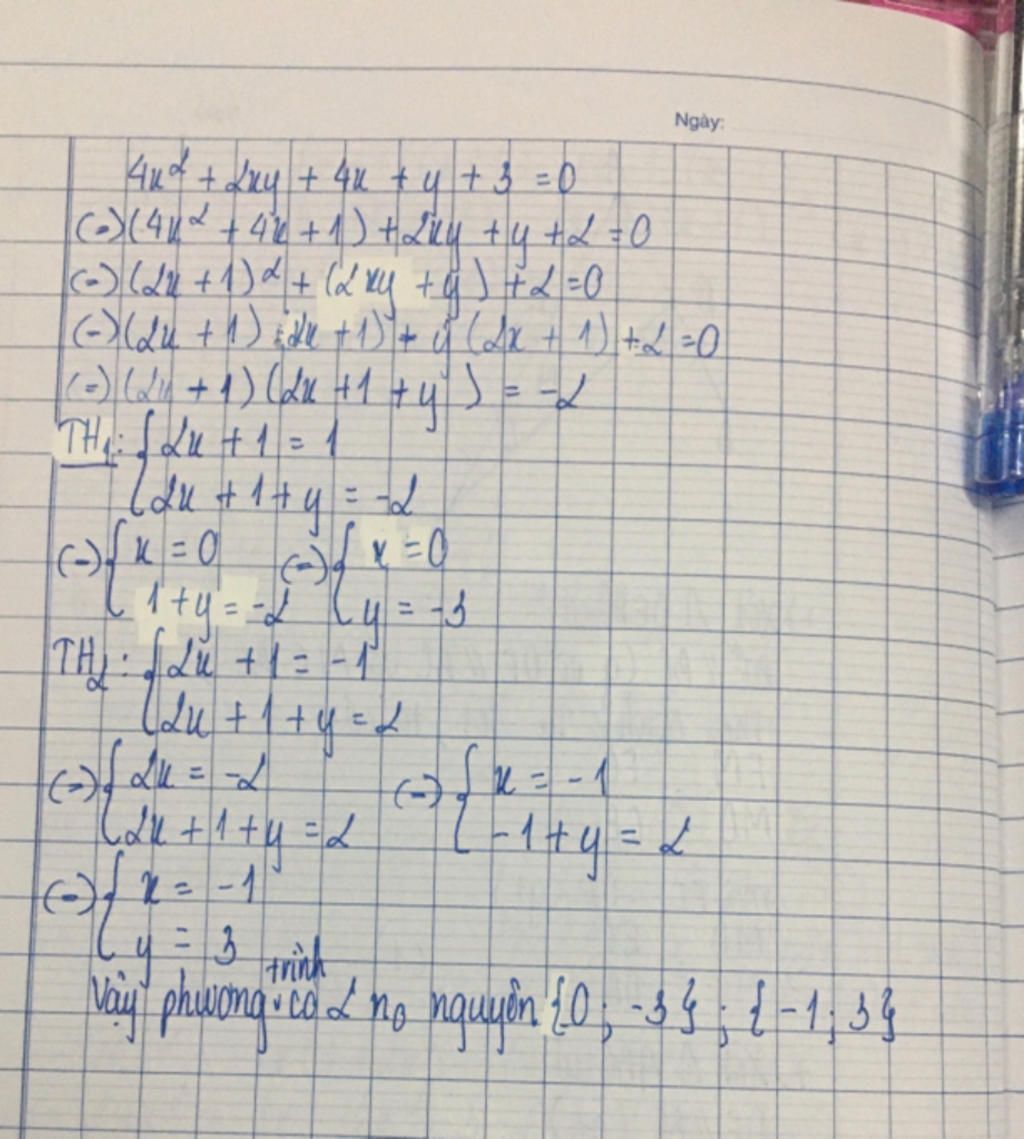 Ngày:
4x² + 2xy + 4x + y + 3 = 0
(=) (4x² + 4x + 1) + 2xy + y + 2 = 0
(=) (2x + 1)² + (2xy + y) + 2 = 0
(=) (2x + 1) (2x + 1) + y (2x + 1) + 2 = 0
(=) (2x + 1) (2x + 1 + y) = -2
TH1: { 2x + 1 = 1
2x + 1 + y = -2
(=) { x = 0 (=) { x = 0
1 + y = -2 y = -3
TH2: { 2x + 1 = -1
2x + 1 + y = 2
(=) { 2x = -2 (=) { x = -1
2x + 1 + y = 2 -1 + y = 2
(=) { x = -1
y = 3
Vậy phương trình có 2 no nguyên {0; -3}; {-1; 3}